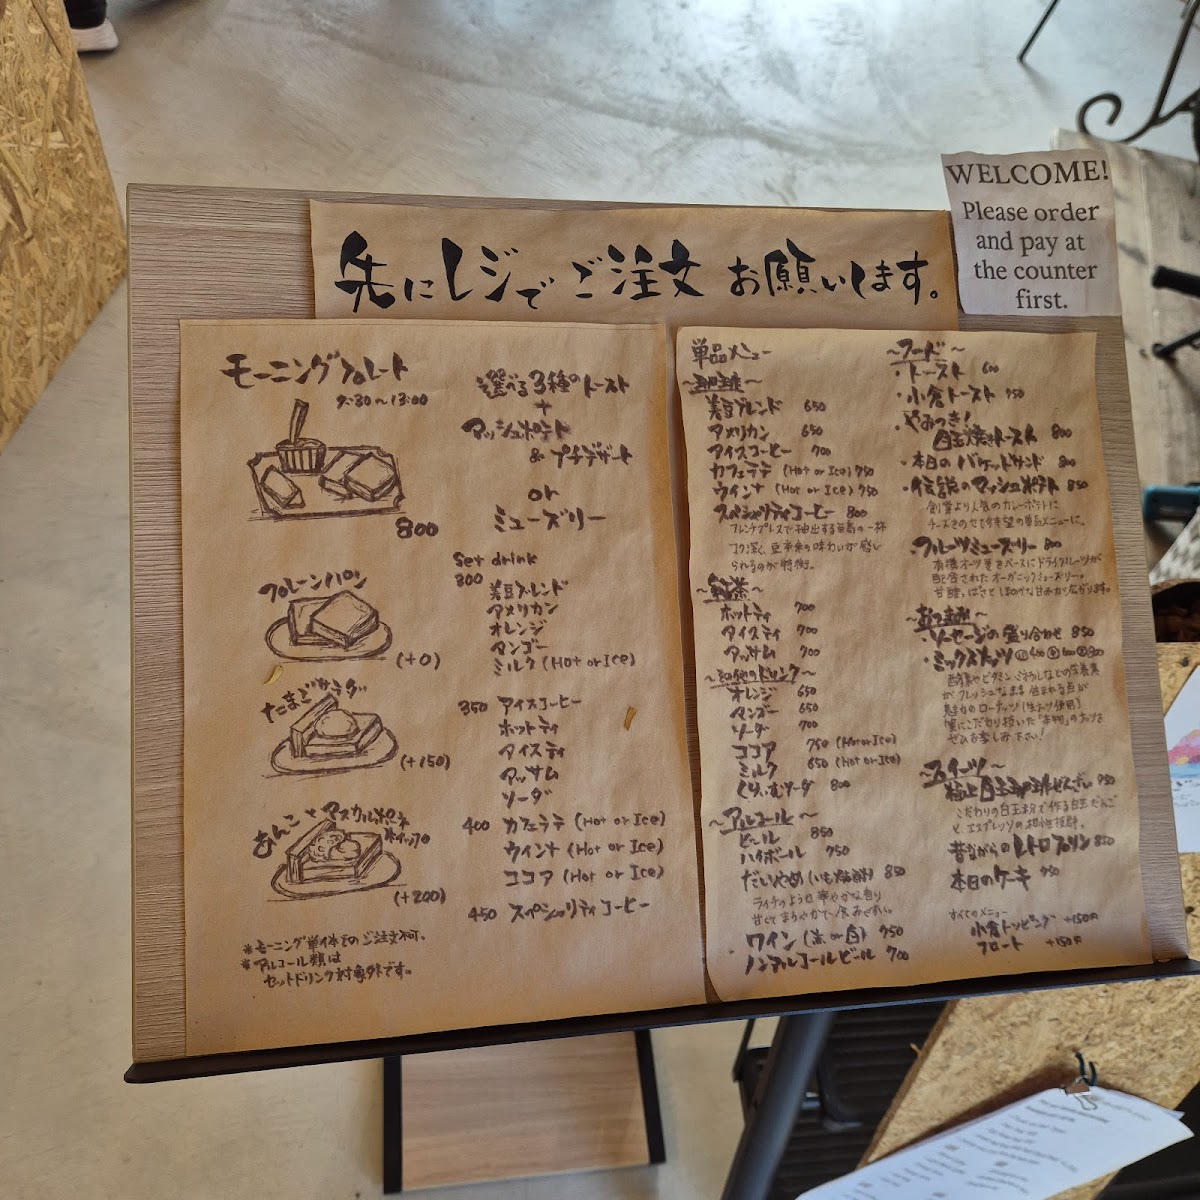 先にレジでご注文お願いします。
WELCOME!
Please order
and pay at
the counter
first.
モーニングプレート
9:30〜13:00
800
選べる3種のトースト
+
マッシュポテト
& プチデザート
or
ミューズリー
プレーンパン
(+0)
たまごサラダ
(+150)
あんことマスカルポーネ
ホイップ
(+200)
※モーニング単体でのご注文不可。
※アルコール類は
セットドリンク対象外です。
Set drink
300
美豆ブレンド
アメリカン
オレンジ
マンゴー
ミルク (Hot or Ice)
350 アイスコーヒー
ホットティ
アイスティ
アッサム
ソーダ
400 カフェラテ (Hot or Ice)
ウィンナ (Hot or Ice)
ココア (Hot or Ice)
450 スペシャリティコーヒー
単品メニュー
〜珈琲〜
美豆ブレンド 650
アメリカン 650
アイスコーヒー 700
カフェラテ (Hot or Ice) 750
ウインナ (Hot or Ice) 750
スペシャリティコーヒー 800
フレンチプレスで抽出する至高の一杯
コク深く、豆本来の味わいが感じ
られるのが特徴。
〜紅茶〜
ホットティ 700
アイスティ 700
アッサム 700
〜その他のドリンク〜
オレンジ 650
マンゴー 650
ソーダ 700
ココア 750 (Hot or Ice)
ミルク 650 (Hot or Ice)
くりぃむソーダ 800
〜アルコール〜
ビール 850
ハイボール 750
だいやめ (いも焼酎) 850
ライチのような華やかな香り
甘くてまろやかで、飲みやすい。
ワイン (赤 or 白) 750
ノンアルコールビール 700
〜フード〜
・トースト 600
・小倉トースト 750
・やみつき!
目玉焼きトースト 800
・本日のバケットサンド 800
・伝説のマッシュポテト 850
創業より人気のカレーポテトに
チーズをのせた待望の単品メニューに。
・フルーツミューズリー 800
有機オーツ麦をベースにドライフルーツが
配合されたオーガニックミューズリー。
〜おつまみ〜
・ソーセージの盛り合わせ 850
・ミックスナッツ
酵素やビタミン、ミネラルなどの栄養素
がフレッシュなまま含まれる点が
魅力のローナッツ (生ナッツ使用)
ぜひお楽しみ下さい!
〜スイーツ〜
こだわりの白玉粉で作る白玉だんご
と、エスプレッソの相性抜群。
昔ながらのレトロプリン 850
本日のケーキ 750
すべてのメニュー
小倉トッピング +150円
フロート +150円